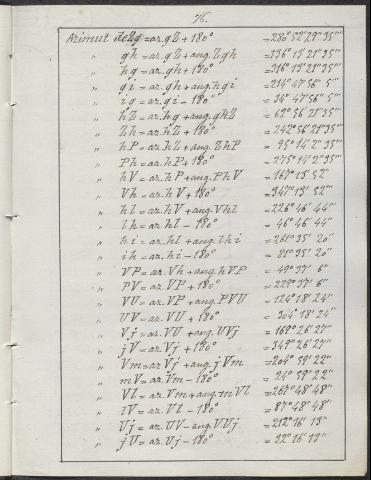 76.
Azimut de Zg = az. gZ + 180° = 280° 52' 29" 35'''
" gh = az. gZ + ang. Zgh = 136° 13' 21" 35'''
" hg = az. gh + 180° = 316° 13' 21" 35'''
" gi = az. gh + ang. hgi = 214° 47' 56" 5'''
" ig = az. gi - 180° = 34° 47' 56" 5'''
" hZ = az. hg + ang. ghZ = 62° 56' 21" 35'''
" Zh = az. hZ + 180° = 242° 56' 21" 35'''
" hP = az. hZ + ang. ZhP = 95° 14' 2" 35'''
" Ph = az. hP + 180° = 275° 14' 2" 35'''
" hV = az. hP + ang. PhV = 167° 13' 52"
" Vh = az. hV + 180° = 347° 13' 52"
" hl = az. hV + ang. Vhl = 226° 46' 44"
" lh = az. hl - 180° = 46° 46' 44"
" hi = az. hl + ang. lhi = 261° 35' 20"
" ih = az. hi - 180° = 81° 35' 20"
" VP = az. Vh + ang. hVP = 49° 37' 6"
" PV = az. VP + 180° = 229° 37' 6"
" VU = az. VP + ang. PVU = 124° 18' 24"
" UV = az. VU + 180° = 304° 18' 24"
" Vj = az. VU + ang. UVj = 169° 26' 27"
" jV = az. Vj + 180° = 349° 26' 27"
" Vm = az. Vj + ang. jVm = 204° 59' 22"
" mV = az. Vm - 180° = 24° 59' 22"
" Vl = az. Vm + ang. mVl = 267° 48' 48"
" lV = az. Vl - 180° = 87° 48' 48"
" Uj = az. UV - ang. VUj = 212° 16' 13"
" jU = az. Uj - 180° = 32° 16' 13"